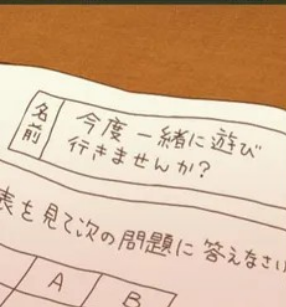 名前
今度一緒に遊び
行きませんか?
表を見て次の問題に答えなさい
A
B